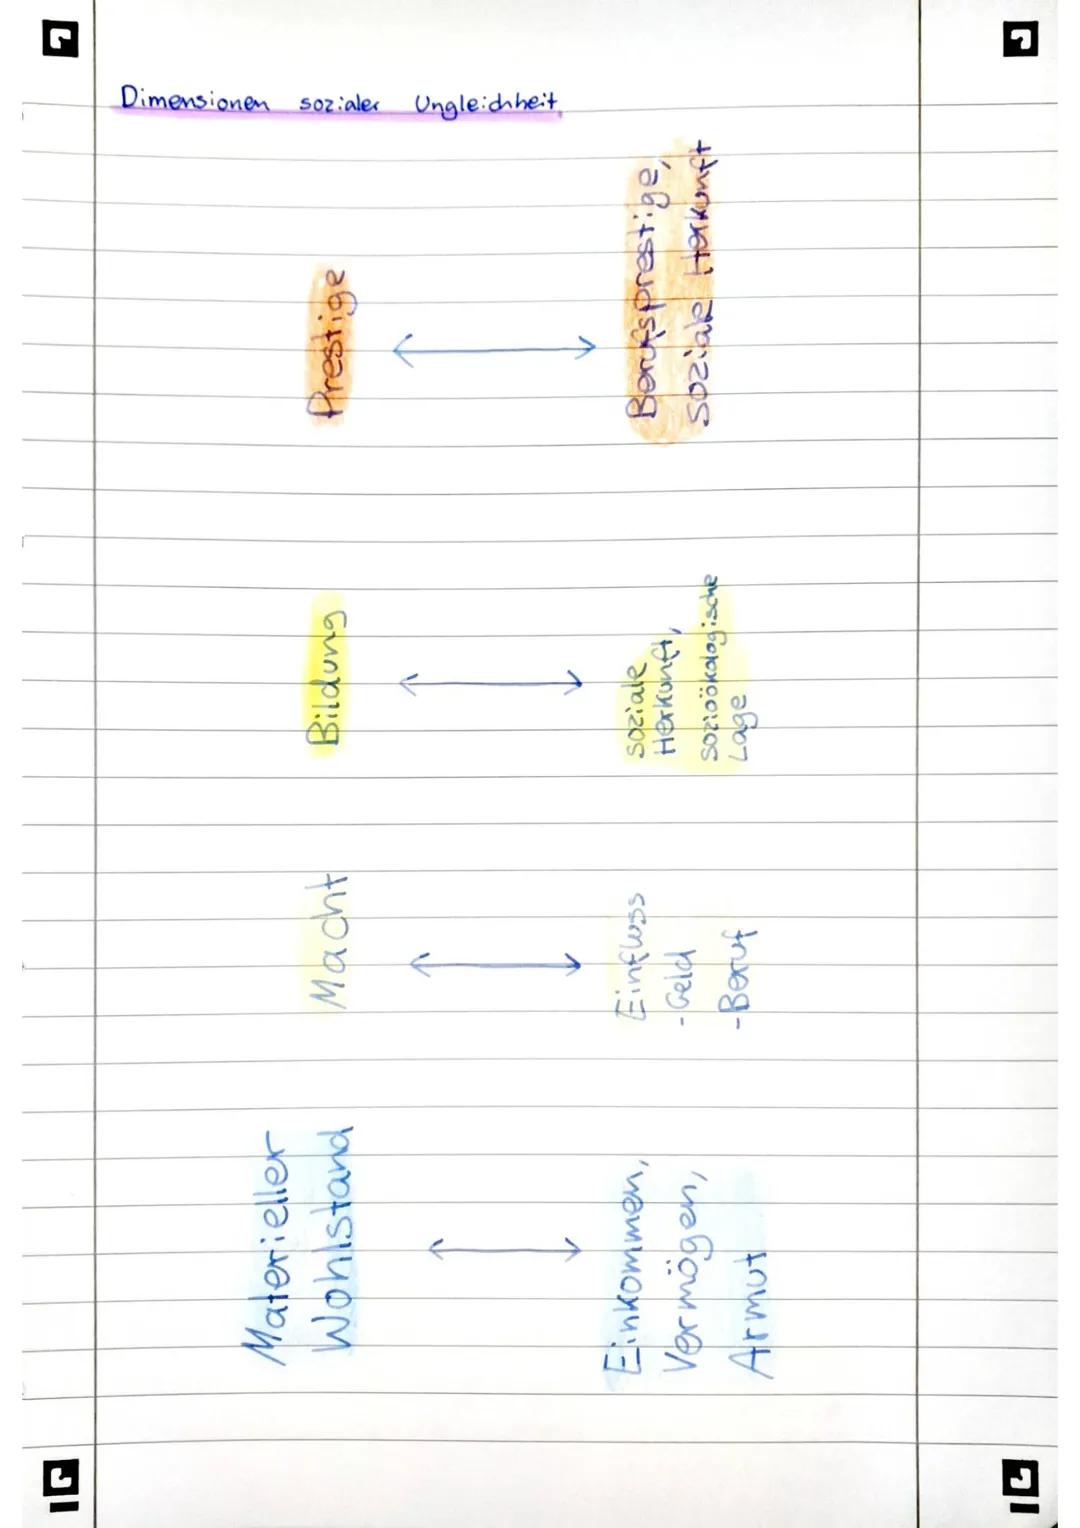 Dimensionen sozialer Ungleichheit
Materieller
Wohlstand
Einkommen,
Vermögen,
Armut
Macht
Einfluss
- Geld
- Beruf
Bildung
soziale
Herkunft,
sozioökologische
Lage
Prestige
Berufsprestige,
soziale Herkunft